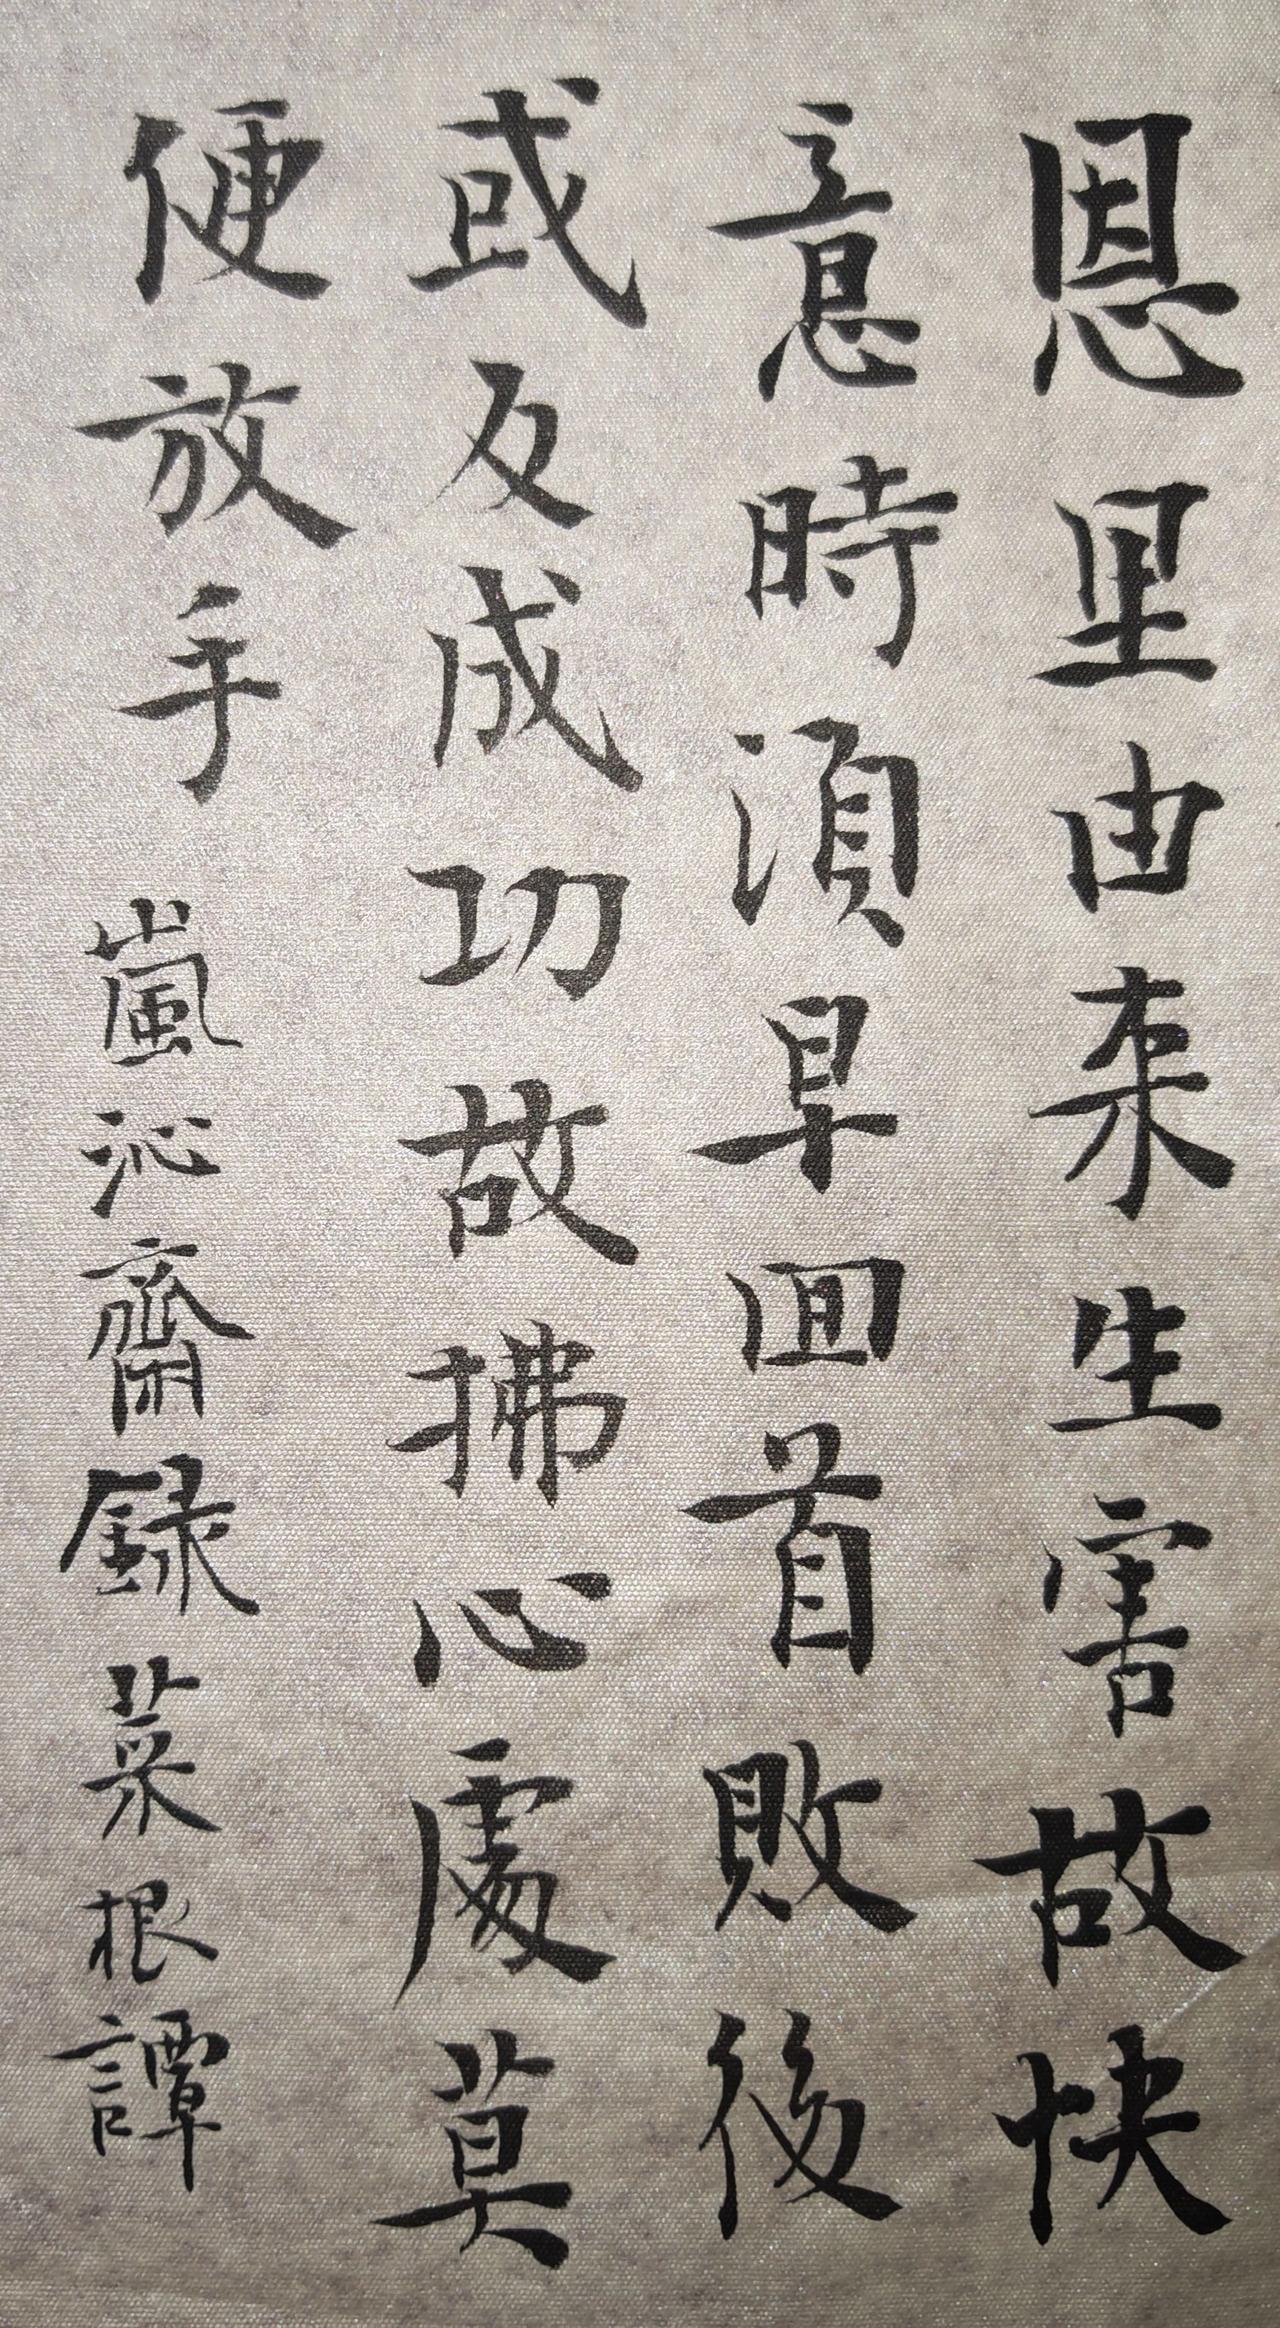 恩里由来生害故快
意時須早回首敗後
或反成功故拂心處莫
便放手 嵐沁齋録菜根譚